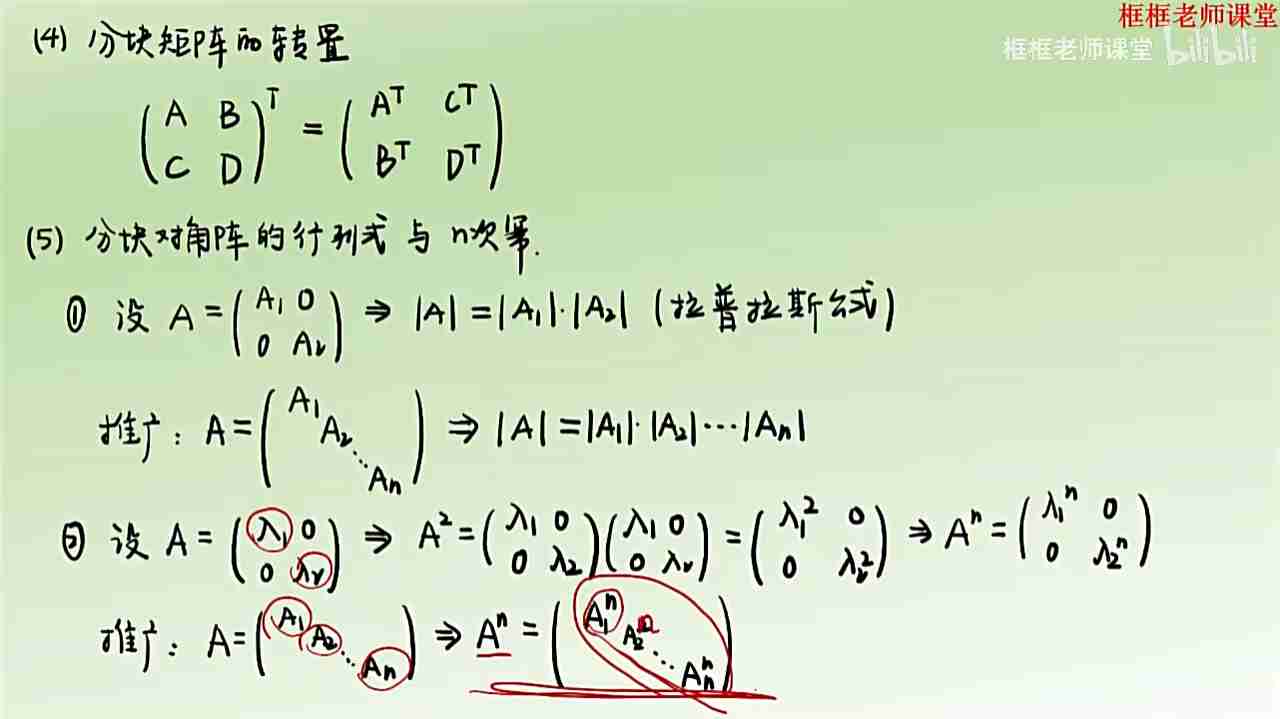 框框老师课堂
框框老师课堂 bilibili
(4) 分块矩阵的转置
(A B; C D)^T = (A^T C^T; B^T D^T)
(5) 分块对角阵的行列式与n次幂.
① 设 A = (A₁ 0; 0 A₂) ⇒ |A| = |A₁|·|A₂| (拉普拉斯公式)
推广: A = (A₁ A₂ ⋱ Aₙ) ⇒ |A| = |A₁|·|A₂|⋯|Aₙ|
② 设 A = (λ₁ 0; 0 λ₂) ⇒ A² = (λ₁ 0; 0 λ₂)(λ₁ 0; 0 λ₂) = (λ₁² 0; 0 λ₂²) ⇒ Aⁿ = (λ₁ⁿ 0; 0 λ₂ⁿ)
推广: A = (A₁ A₂ ⋱ Aₙ) ⇒ Aⁿ = (A₁ⁿ A₂ⁿ ⋱ Aₙⁿ)